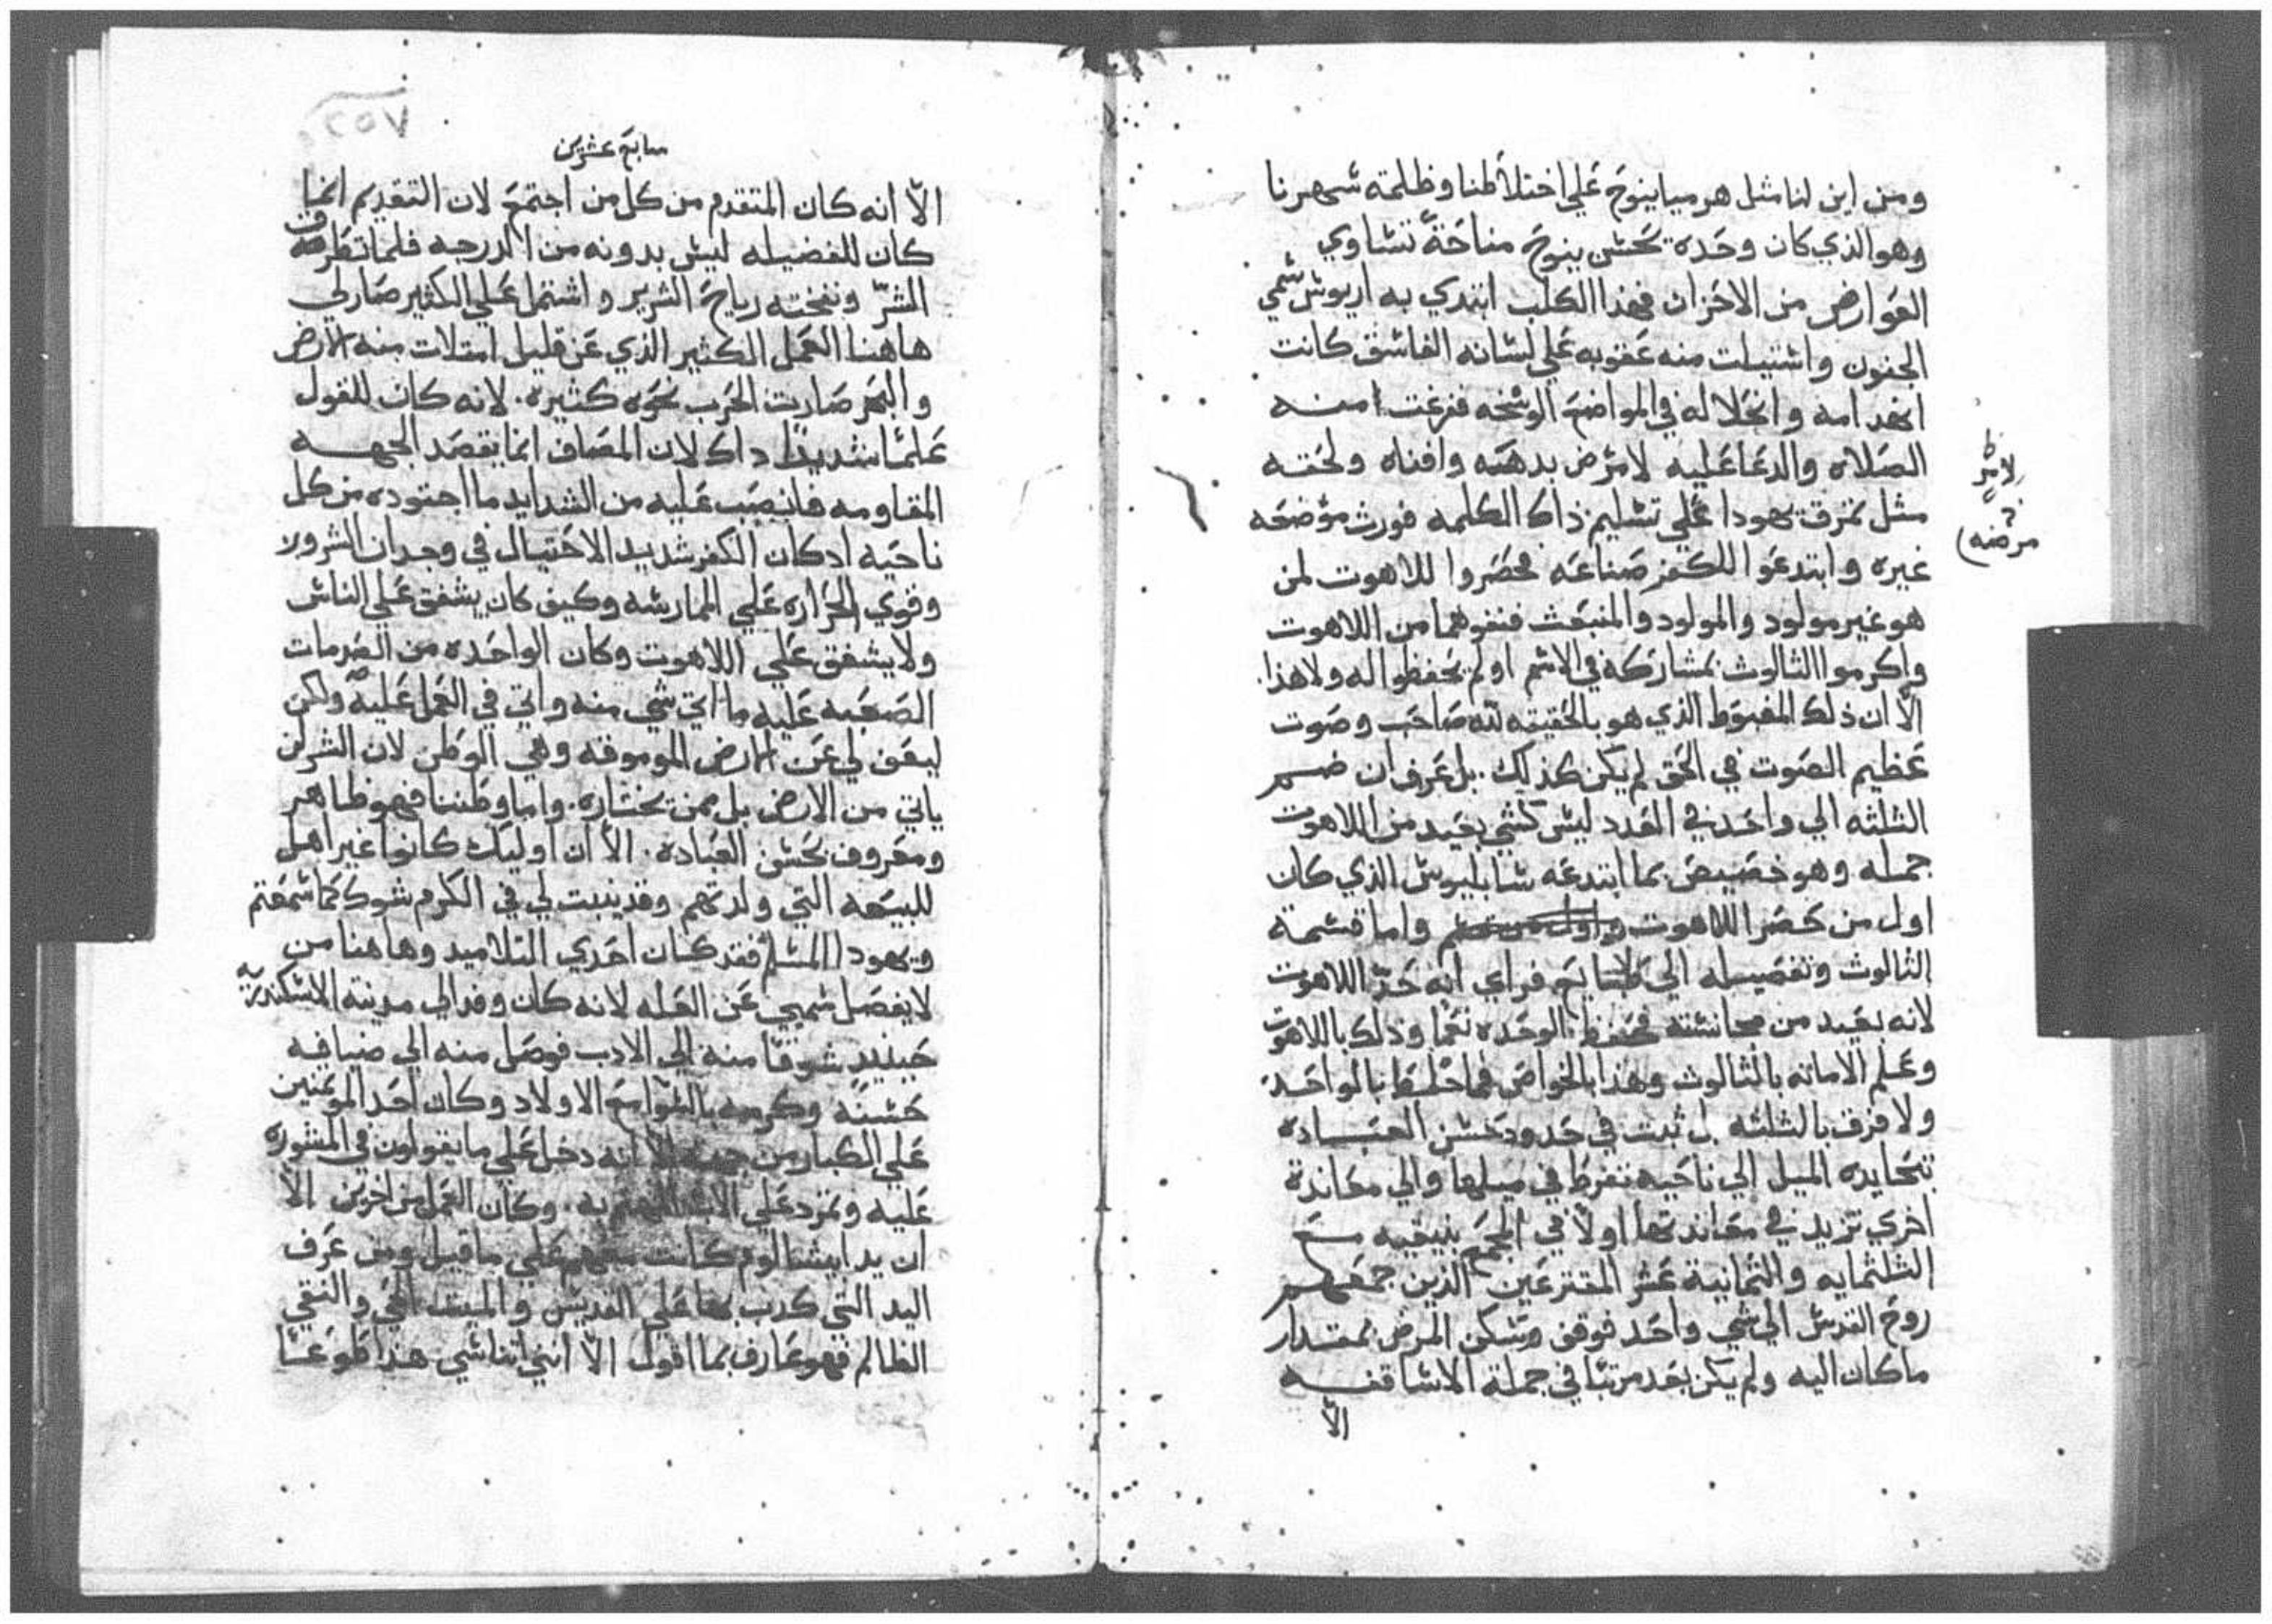 ومن اين لنا مثل هرميا ينوح علي اختلاطنا وظلمته شهرنا
وهو الذي كان وحده يحسن ينوح مناحة تساوي
العوارض من الاحزان فهذا الكلب ابتدي به اريوس سمي
الجنون واستبيلت منه عقوبه علي لسانه الفاسق كانت
انهدامه وانحلاله في المواضع الوسخه فنزعت امنه
الصلاه والدعا عليه لا مرض بدهته وافناه ولحقته
مثل تمزق يهودا علي تسليم ذاك الكلمه فورث موضعه
غيره وابتدعوا للكفر صناعه فحصروا للاهوت لمن
هو غير مولود والمولود والمنبعث فنفوهما من اللاهوت
واكرموا الثالوث بمشاركة في الاسم او لم يحفظوا له ولا هذا.
الّا ان ذلك المغبوط الذي هو بالحقيقه لله صاحب وصوت
عظيم الصوت في الحق لم يكن كذلك. بل عرف ان ضم
الثلثه الي واحد في العدد ليس كشي بعيد من اللاهوت
جمله وهو خصيص بما ابتدعه سابليوس الذي كان
اول من حصر اللاهوت واما قسمة
الثالوث وتفصيله الي طبايع فراي انه حدّ اللاهوت
لانه بعيد من مجانسته فحفظ الوحده نعما وذلك باللاهوت
وعلم الامانه بالثالوث وهذا بالخواص فما خلط بالواحد.
ولا فرق بالثلثه بل ثبت في حدود حسن العباده
بتحايده الميل الي ناحيه تفرط في ميلها والي معاندة
اخري تزيد في معاندتها اولًا في المجمع بنيقيه مع
الثلثمايه والثمانية عشر المقترعين الذين جمعهم
روح القدس الي شي واحد فوقف وسكن المرض بمقدار
ما كان اليه ولم يكن بعد مرتبًا في جملة الاساقفه
الّا
لامر
مرضه
سابع عشرين
الّا انه كان المتقدم من كل من اجتمع لان التقديم انما
كان للفضيله ليس بدونه من الدرجه فلما تطرقت
الشرّ ونفخته رياح الشرير واشتمل علي الكثير صار لي
هاهنا العمل الكثير الذي عن قليل امتلات منه الارض
والبحر صارت الحرب نحوه كثيره. لانه كان للقول
علمًا شديدًا داك لان المصاف انما يقصد الجهه
المقاومه فانصبّ عليه من الشدايد ما احتوده من كل
ناحيه اذ كان الكفر شديد الاحتيال في وجدان الشرور
وقوي الحراره علي الممارسه وكيف كان يشفق علي الناس
ولا يشفق علي اللاهوت وكان الواحده من الصدمات
الصعبه عليه ما اتي شي منه واتي في العمل عليه ولكن
ليعف لي عن الارض الموموقه وهي الوطن لان الشر لن
ياتي من الارض بل ممن يختاره. واما وطننا فهو طاهر
ومعروف بحسن العباده. الّا ان اوليك كانوا غير اهل
للبيعه التي ولدتهم وقد ينبت لي في الكرم شوك كما سمعتم
ويهودا المسلم فقد كان احدي التلاميد وهاهنا من
لا يفصل سميي عن العله لانه كان وفد الي مدينة الاسكندريه
حينيد شوقًا منه الي الادب فوصل منه الي ضيافه
حسنه وكرمه بالتواسع الاولاد وكان احد المومنين
علي الكبار من جهته الّا انه دخل علي ما يقولون في المشوره
عليه وتمرد علي الاب المهتم به. وكان العمل من اخرين الّا
ان يد ابيشالوم كانت معهم علي ما قيل ومن عرف
اليد التي كدب بها علي القديس والميت الحي والنفي
الظالم فهو عارف بما اقول الّا انني اتناسي هذا طوعًا